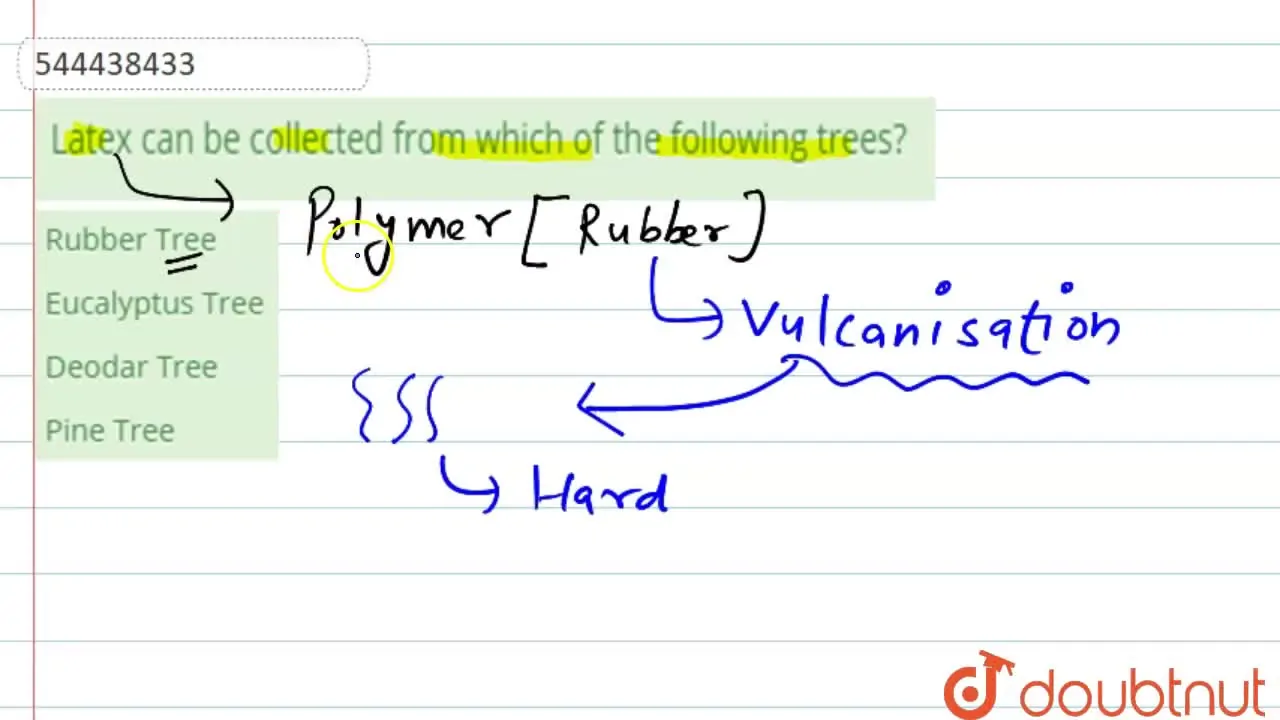 544438433
Latex can be collected from which of the following trees?
Rubber Tree
Polymer [Rubber]
Eucalyptus Tree
Vulcanisation
Deodar Tree
Pine Tree
Hard
doubtnut